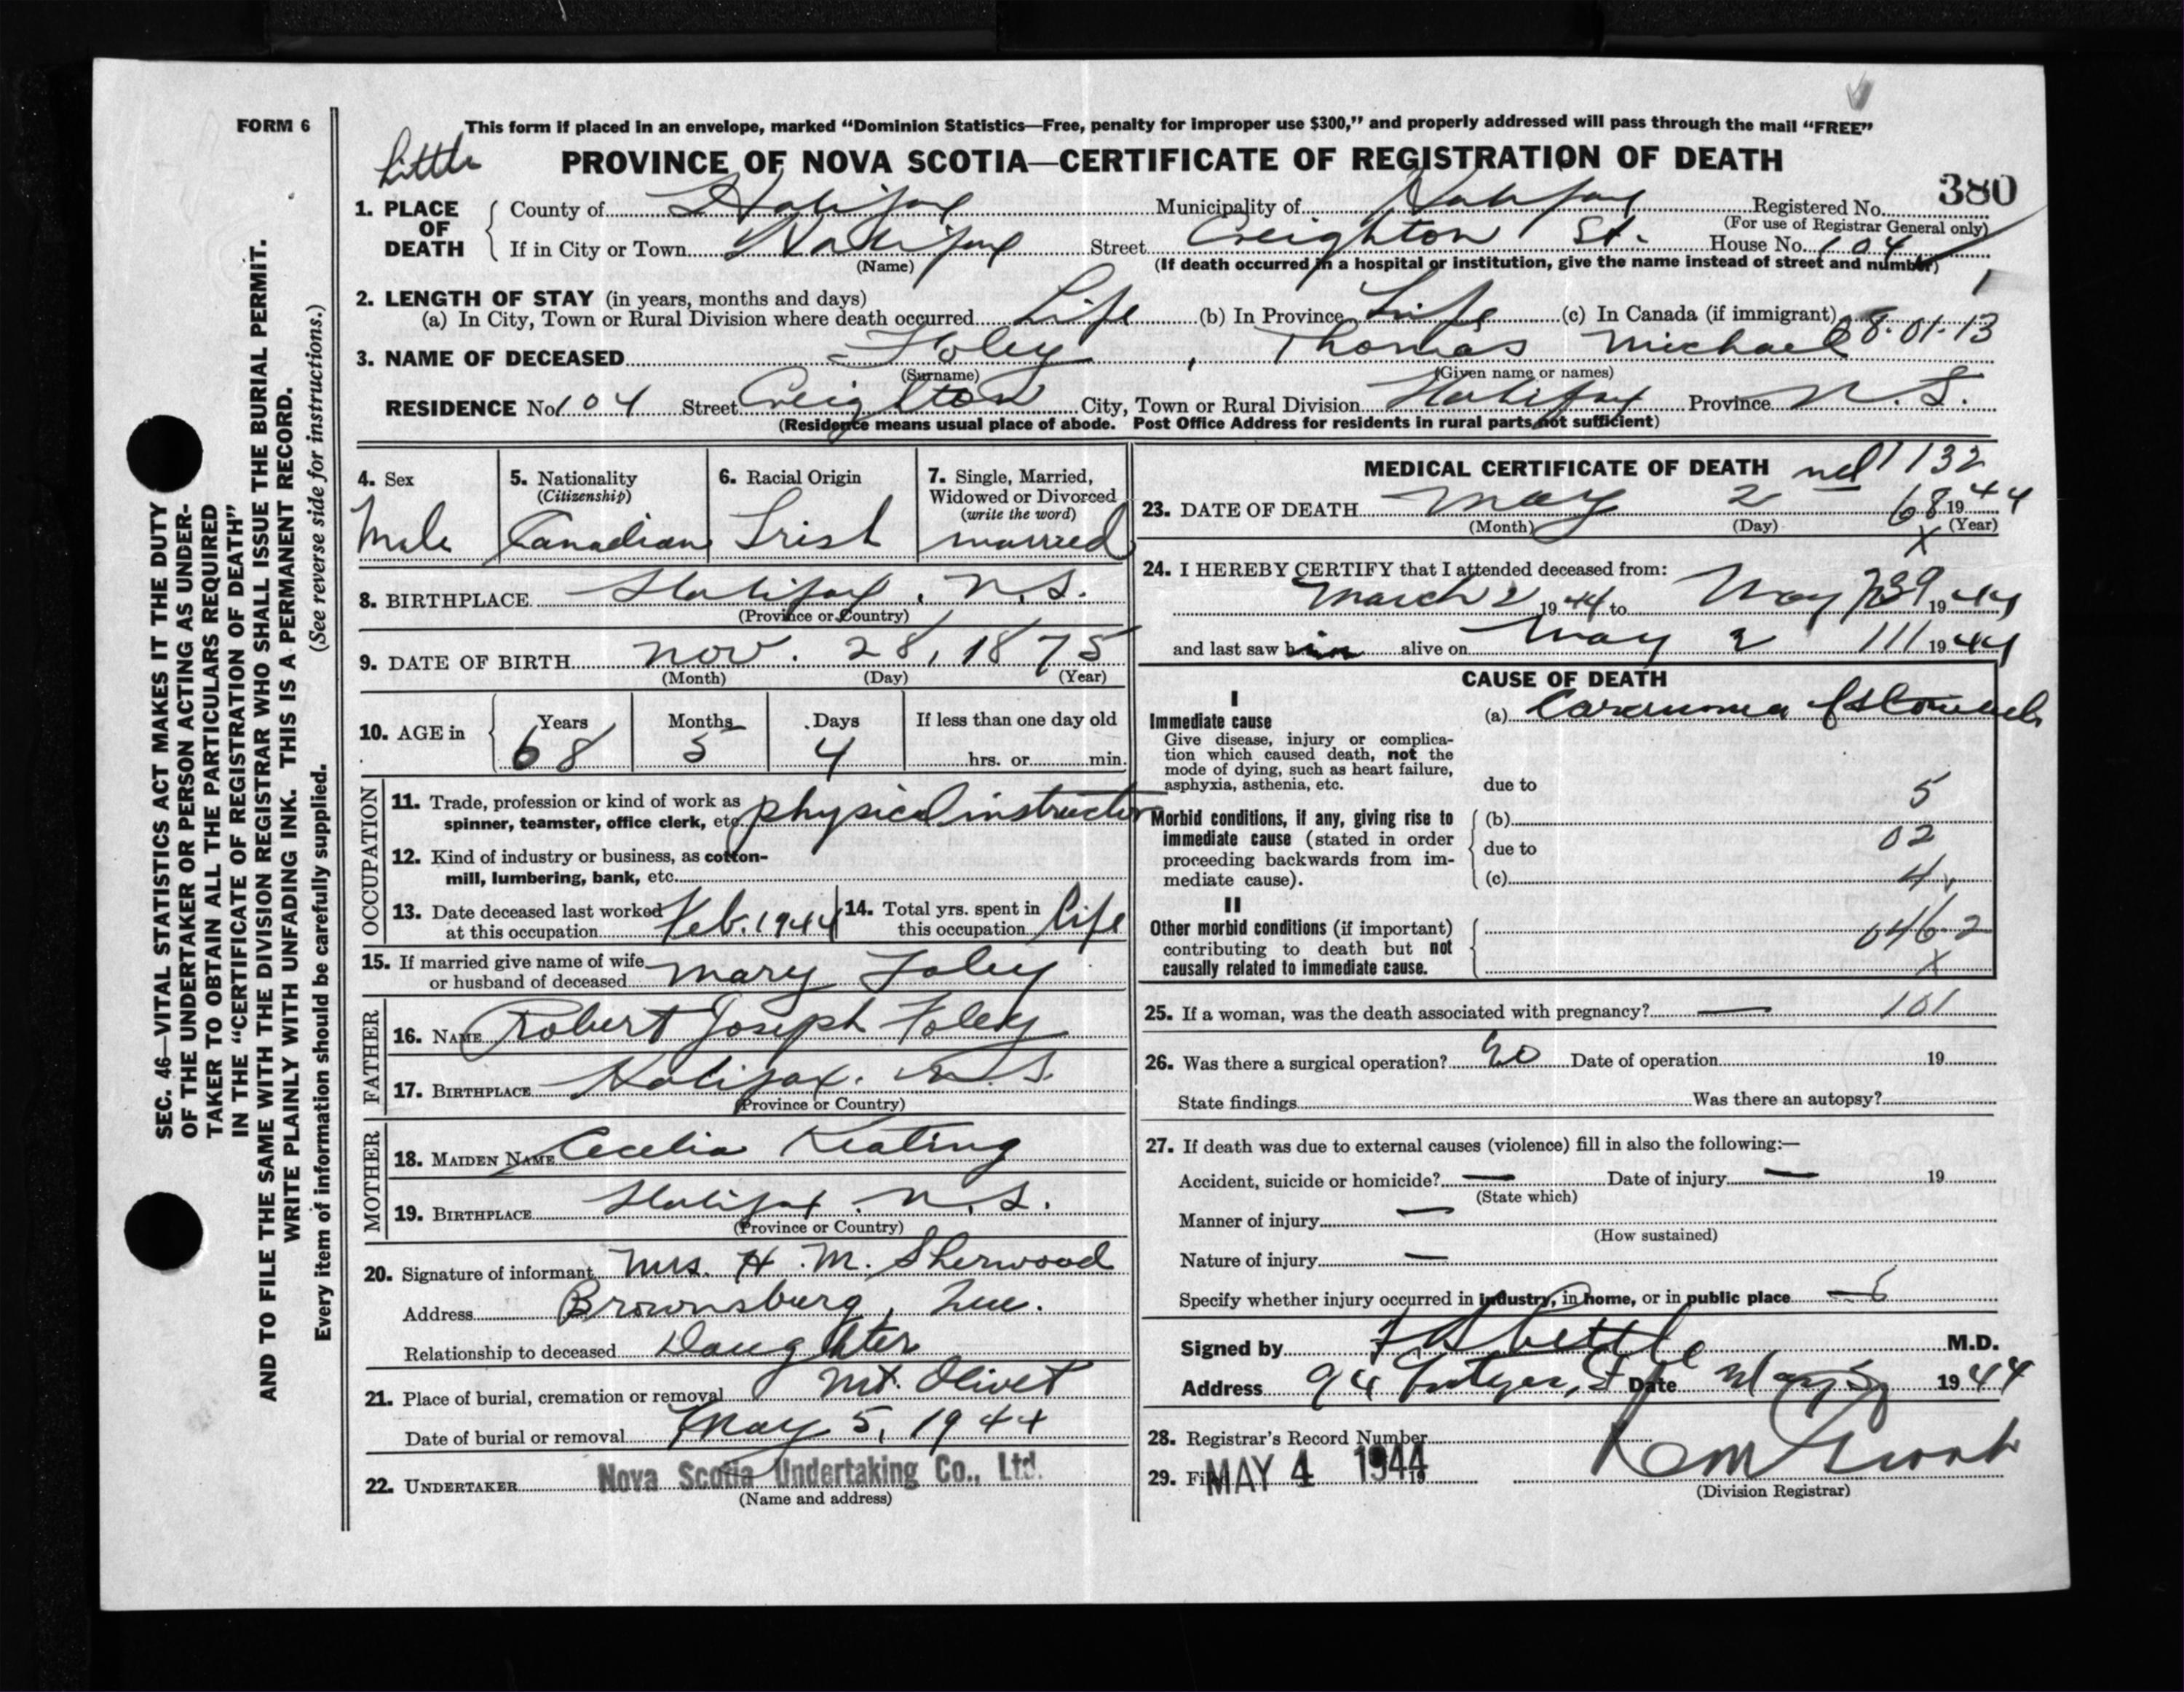 FORM 6
This form if placed in an envelope, marked “Dominion Statistics—Free, penalty for improper use $300,” and properly addressed will pass through the mail “FREE”
Little
PROVINCE OF NOVA SCOTIA—CERTIFICATE OF REGISTRATION OF DEATH
380
1. PLACE OF DEATH
County of Halifax Municipality of Halifax Registered No.
(For use of Registrar General only)
If in City or Town Halifax Street Creighton St. House No. 104
(Name) (If death occurred in a hospital or institution, give the name instead of street and number)
2. LENGTH OF STAY (in years, months and days)
(a) In City, Town or Rural Division where death occurred Life (b) In Province Life (c) In Canada (if immigrant)
8.01.13
3. NAME OF DECEASED Foley, Thomas Michael
(Surname) (Given name or names)
RESIDENCE No. 104 Street Creighton City, Town or Rural Division Halifax Province N.S.
(Residence means usual place of abode. Post Office Address for residents in rural parts not sufficient)
4. Sex
Male
5. Nationality
(Citizenship)
Canadian
6. Racial Origin
Irish
7. Single, Married, Widowed or Divorced
(write the word)
married
8. BIRTHPLACE Halifax, N.S.
(Province or Country)
9. DATE OF BIRTH Nov. 28, 1875
(Month) (Day) (Year)
10. AGE in
Years Months Days If less than one day old
68 5 4 hrs. or min.
OCCUPATION
11. Trade, profession or kind of work as
spinner, teamster, office clerk, etc. physical instructor
12. Kind of industry or business, as cotton-
mill, lumbering, bank, etc.
13. Date deceased last worked
at this occupation Feb. 1944
14. Total yrs. spent in
this occupation Life
15. If married give name of wife
or husband of deceased Mary Foley
FATHER
16. NAME Robert Joseph Foley
17. BIRTHPLACE Halifax. N.S.
(Province or Country)
MOTHER
18. MAIDEN NAME Cecelia Keating
19. BIRTHPLACE Halifax. N.S.
(Province or Country)
20. Signature of informant Mrs. H. M. Sherwood
Address Brownsburg, Que.
Relationship to deceased Daughter
21. Place of burial, cremation or removal Mt. Olivet
Date of burial or removal May 5, 1944
22. UNDERTAKER Nova Scotia Undertaking Co., Ltd.
(Name and address)
MEDICAL CERTIFICATE OF DEATH
1132
23. DATE OF DEATH May 2 1944
68
(Month) (Day) (Year)
x
24. I HEREBY CERTIFY that I attended deceased from:
March 2 1944 to May 2 1944
39
and last saw him alive on May 2 1944
111
CAUSE OF DEATH
I
Immediate cause
Give disease, injury or complica-
tion which caused death, not the
mode of dying, such as heart failure,
asphyxia, asthenia, etc.
(a) Carcinoma of Stomach
due to
5
Morbid conditions, if any, giving rise to
immediate cause (stated in order
proceeding backwards from im-
mediate cause).
(b)
due to 02
(c) 4
II
Other morbid conditions (if important)
contributing to death but not
causally related to immediate cause.
046.2
x
25. If a woman, was the death associated with pregnancy? — 101
26. Was there a surgical operation? no Date of operation 19
State findings Was there an autopsy?
27. If death was due to external causes (violence) fill in also the following:—
Accident, suicide or homicide? — Date of injury — 19
(State which)
Manner of injury —
(How sustained)
Nature of injury —
Specify whether injury occurred in industry, in home, or in public place —
Signed by M.D.
Address 94 St Date May 1944
28. Registrar's Record Number
29. Filed MAY 4 1944 19
(Division Registrar)
SEC. 46—VITAL STATISTICS ACT MAKES IT THE DUTY
OF THE UNDERTAKER OR PERSON ACTING AS UNDER-
TAKER TO OBTAIN ALL THE PARTICULARS REQUIRED
IN THE “CERTIFICATE OF REGISTRATION OF DEATH”
AND TO FILE THE SAME WITH THE DIVISION REGISTRAR WHO SHALL ISSUE THE BURIAL PERMIT.
WRITE PLAINLY WITH UNFADING INK. THIS IS A PERMANENT RECORD.
Every item of information should be carefully supplied. (See reverse side for instructions.)